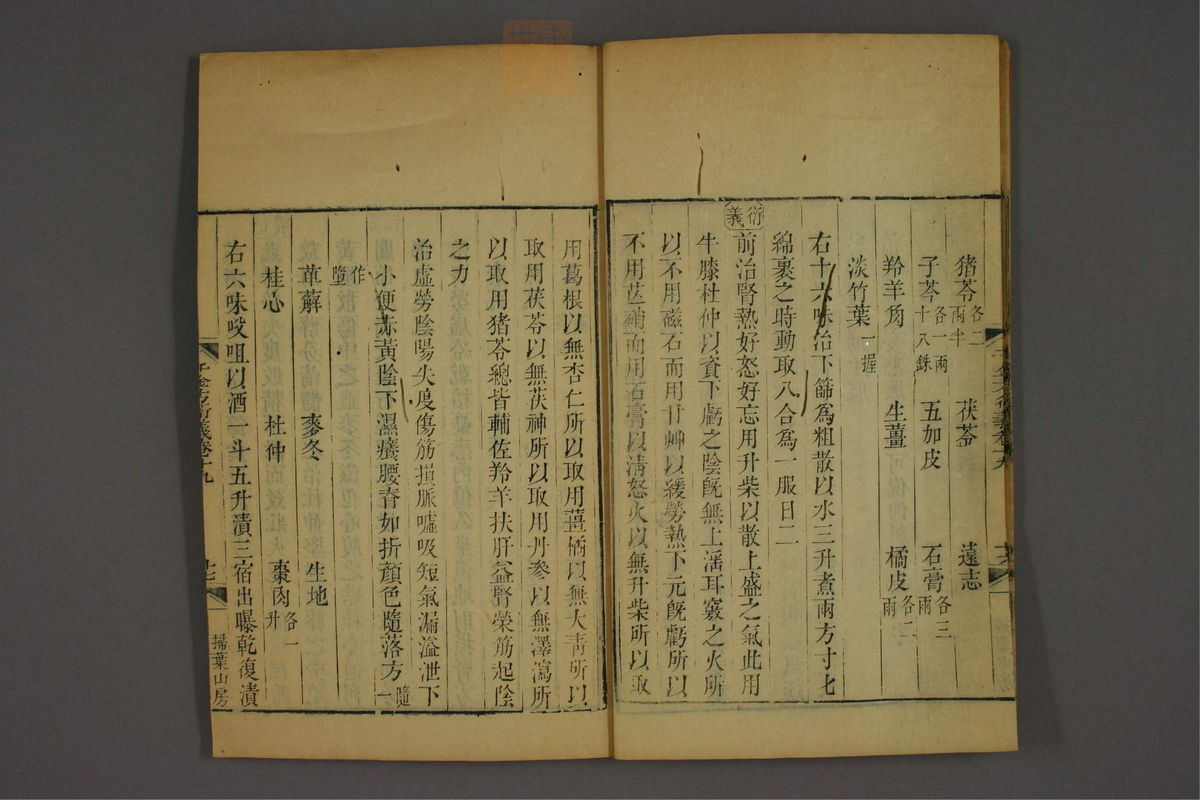 豬苓各二兩半 茯苓 遠志
子芩各一兩十八銖 五加皮 石膏各三兩
羚羊角 生薑 橘皮各二兩
淡竹葉一握
右十六味治下篩爲粗散以水三升煮兩方寸匕
綿裹之時動取八合爲一服日二
衍義
前治腎熱好怒好忘用升柴以散上盛之氣此用
牛膝杜仲以資下虧之陰旣無上淫耳竅之火所
以不用磁石而用甘艸以緩勞熱下元旣虧所以
不用芒硝而用石膏以淸怒火以無升柴所以取
用葛根以無杏仁所以取用薑橘以無大靑所以
取用茯苓以無茯神所以取用丹參以無澤瀉所
以取用豬苓總皆輔佐羚羊扶肝益腎榮筋起陰
之力
治虛勞陰陽失度傷筋損脈噓吸短氣漏溢泄下
小便赤黃陰下濕癢腰脊如折顏色隨落方隨一
作墮
萆薢 麥冬 生地
桂心 杜仲 棗肉各一升
右六味㕮咀以酒一斗五升漬三宿出曝乾復漬
千金方衍義卷十九
十七
掃葉山房